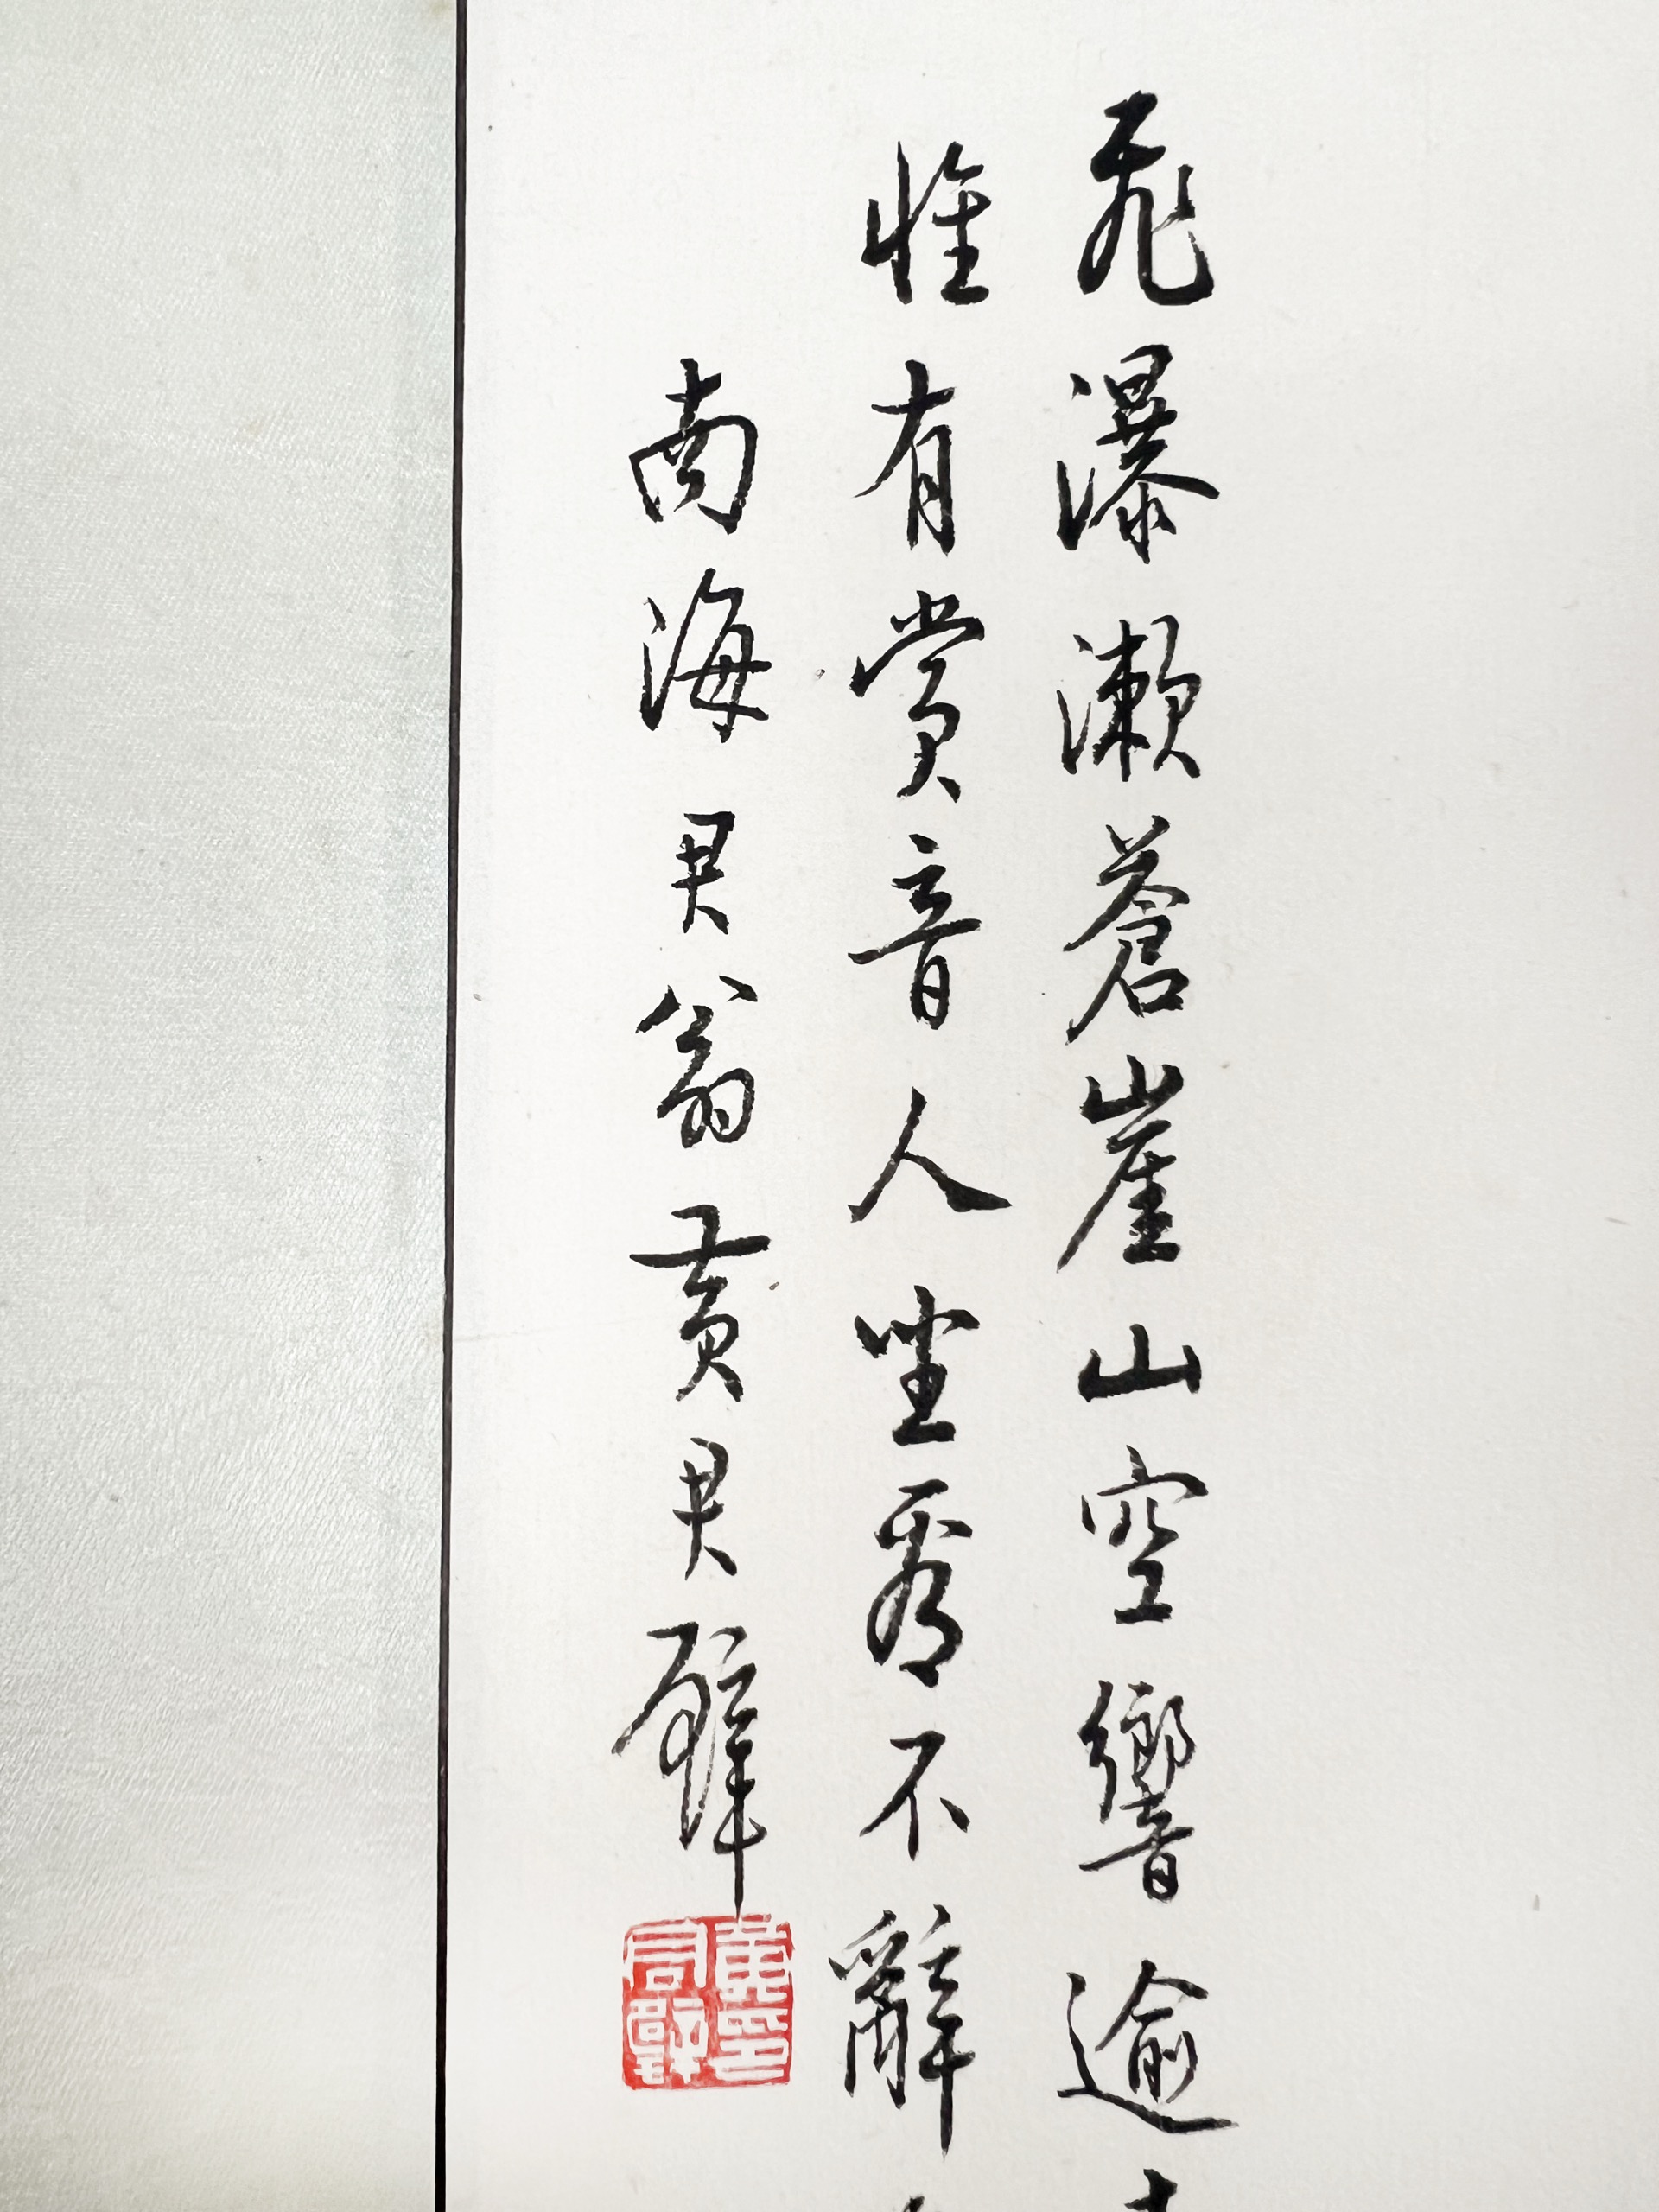 飛瀑瀨蒼崖山空響逾
惟有賞音人坐看不辭
南海君翁黃君璧
黃君璧印